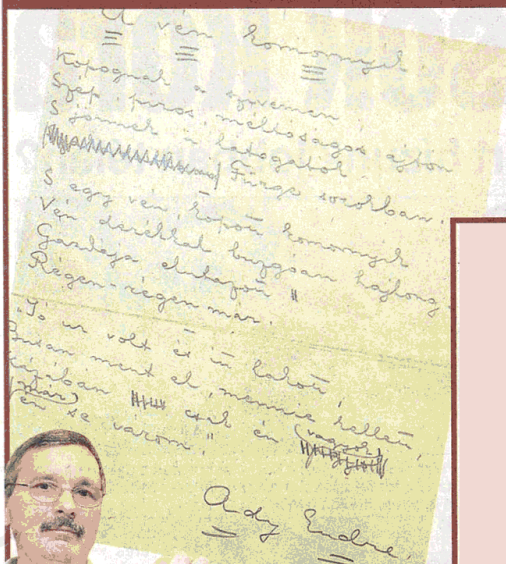 A vén komornyik
Kopognak a szívemen
Szép, piros, méltóságos ajtón
S jönnek a látogatók
Fürge sorokban.
S egy vén, kopott komornyik
Vén derékkal buzgón hajlong
Gazdája elutazott
Régen-régen már.
"Jó úr volt és itt lakott,
Busan ment el, mennie kellett,
csak én vagyok
(már)
én se várom."
Ady Endre.